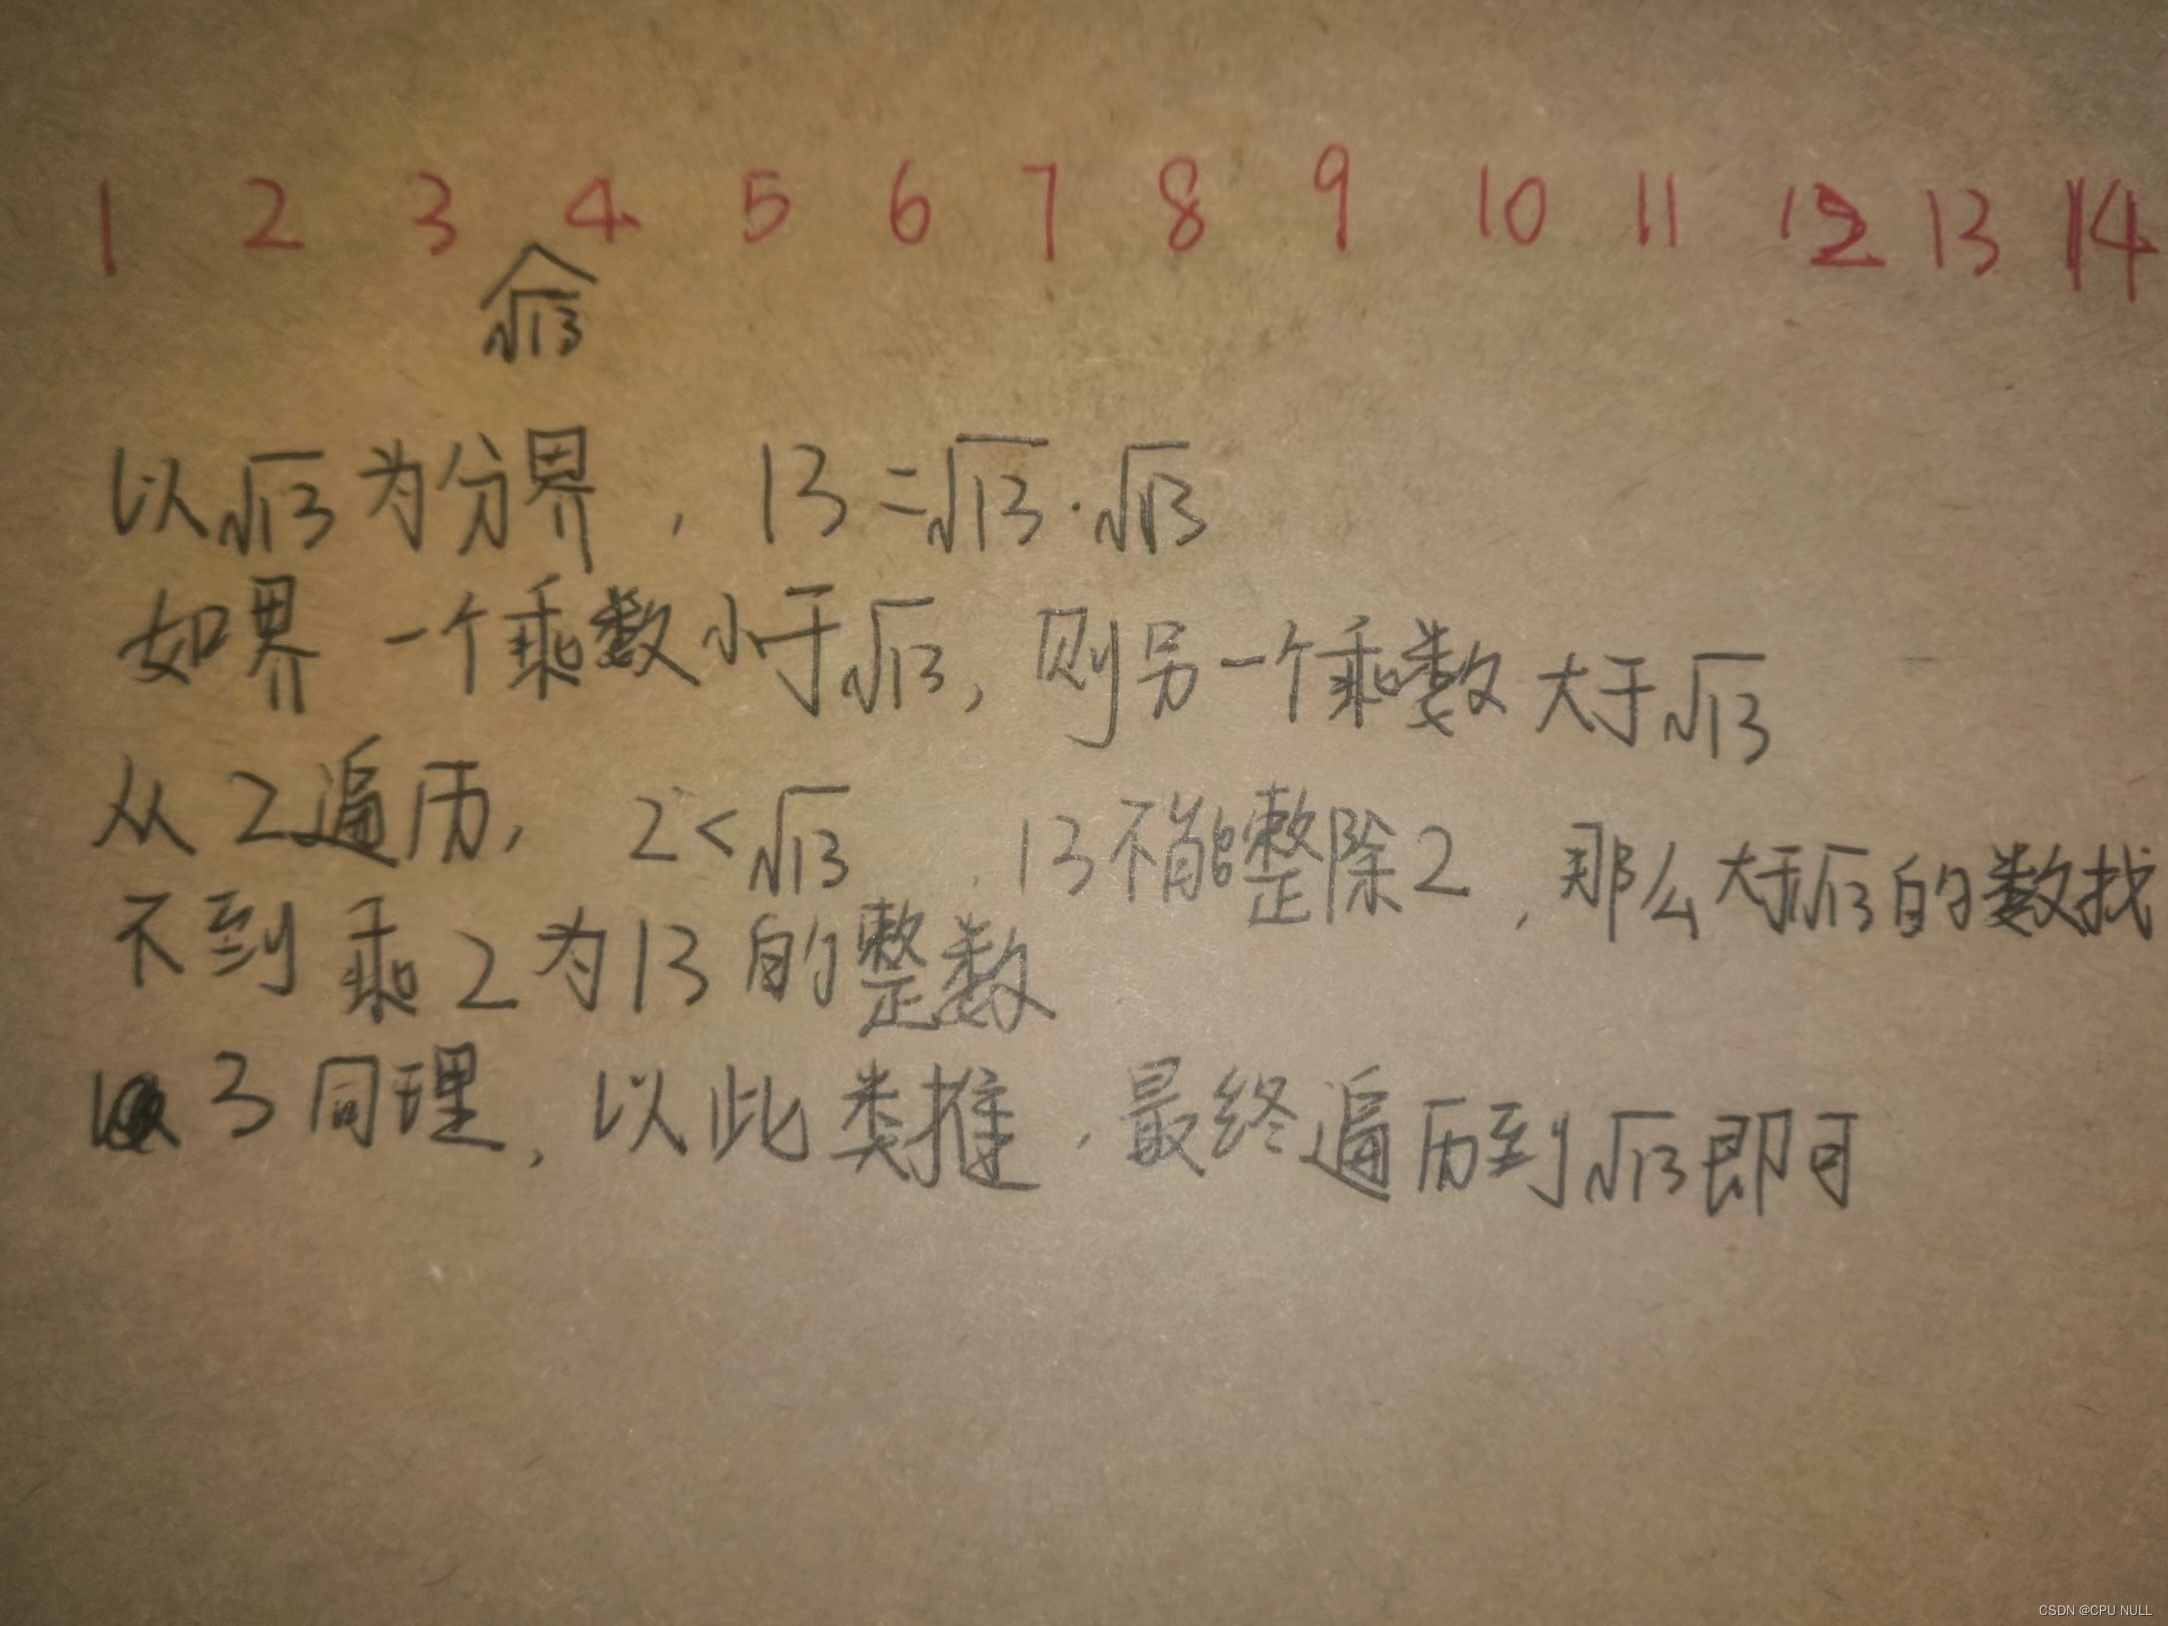 1 2 3 4 5 6 7 8 9 10 11 12 13 14
√13
以√13为分界，13=√13·√13
如界一个乘数小于√13，则另一个乘数大于√13
从2遍历，2<√13，13不能整除2，那么大于√13的数找
不到乘2为13的整数
3同理，以此类推，最终遍历到√13即可
CSDN @CPU NULL